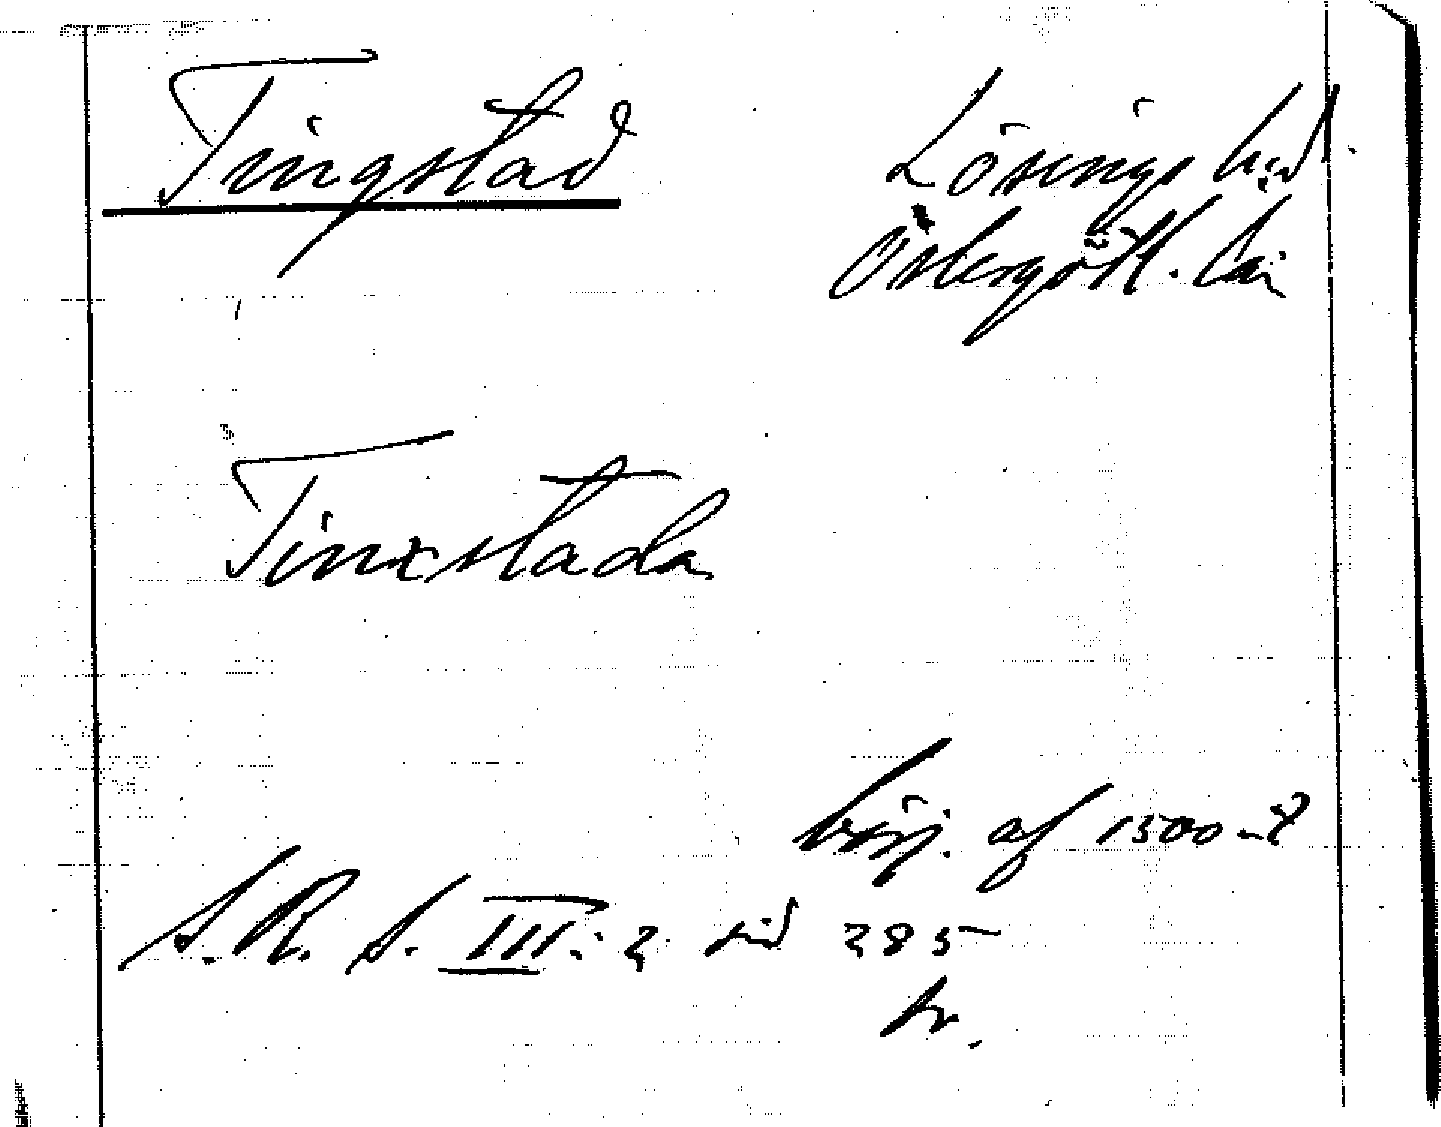 Tingstad
Lösings hd
Östergötl. län
Tinxstada
börj. af 1500-t
S. R. S. III: 2 sid 285
tr.